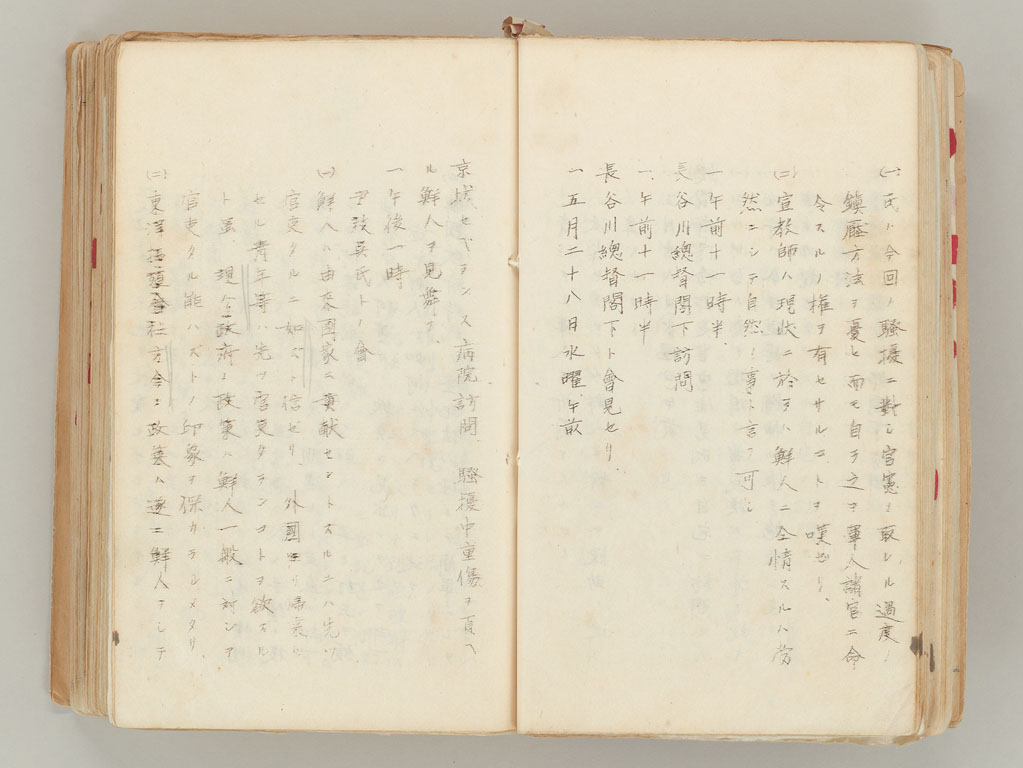 (一)氏ハ今回ノ騒擾ニ対シ官憲ノ取レル過度ノ
鎮圧方法ヲ憂ヒ而モ自ラ之ヲ軍人諸官ニ命
令スルノ権ヲ有セサルコトヲ嘆ゼリ、
(二)宣教師ハ現状ニ於テハ鮮人ニ全情スルハ当
然ニシテ自然ノ事ト言フ可シ
一、午前十一時半
長谷川總督閣下訪問
一、午前十一時半
長谷川總督閣下ト會見セリ、
一、五月二十八日水曜、午前
京城セベランス病院訪問 騒擾中重傷ヲ負ヘ
ル鮮人ヲ見舞フ、
一、午後一時
尹致昊氏トノ會
(一)鮮人ハ由来国家ニ貢献セントスルニハ先ツ
官吏タルニ如ズト信ゼリ 外國ヨリ帰来
セル青年等ハ先ツ官吏タランコトヲ欲スル
ト虽、現今政府ノ政策ハ鮮人一般ニ対シテ
官吏タル能ハズトノ印象ヲ保カラルメタリ
(二)東洋拓殖會社方今ノ政策ハ遂ニ鮮人ヲシテ